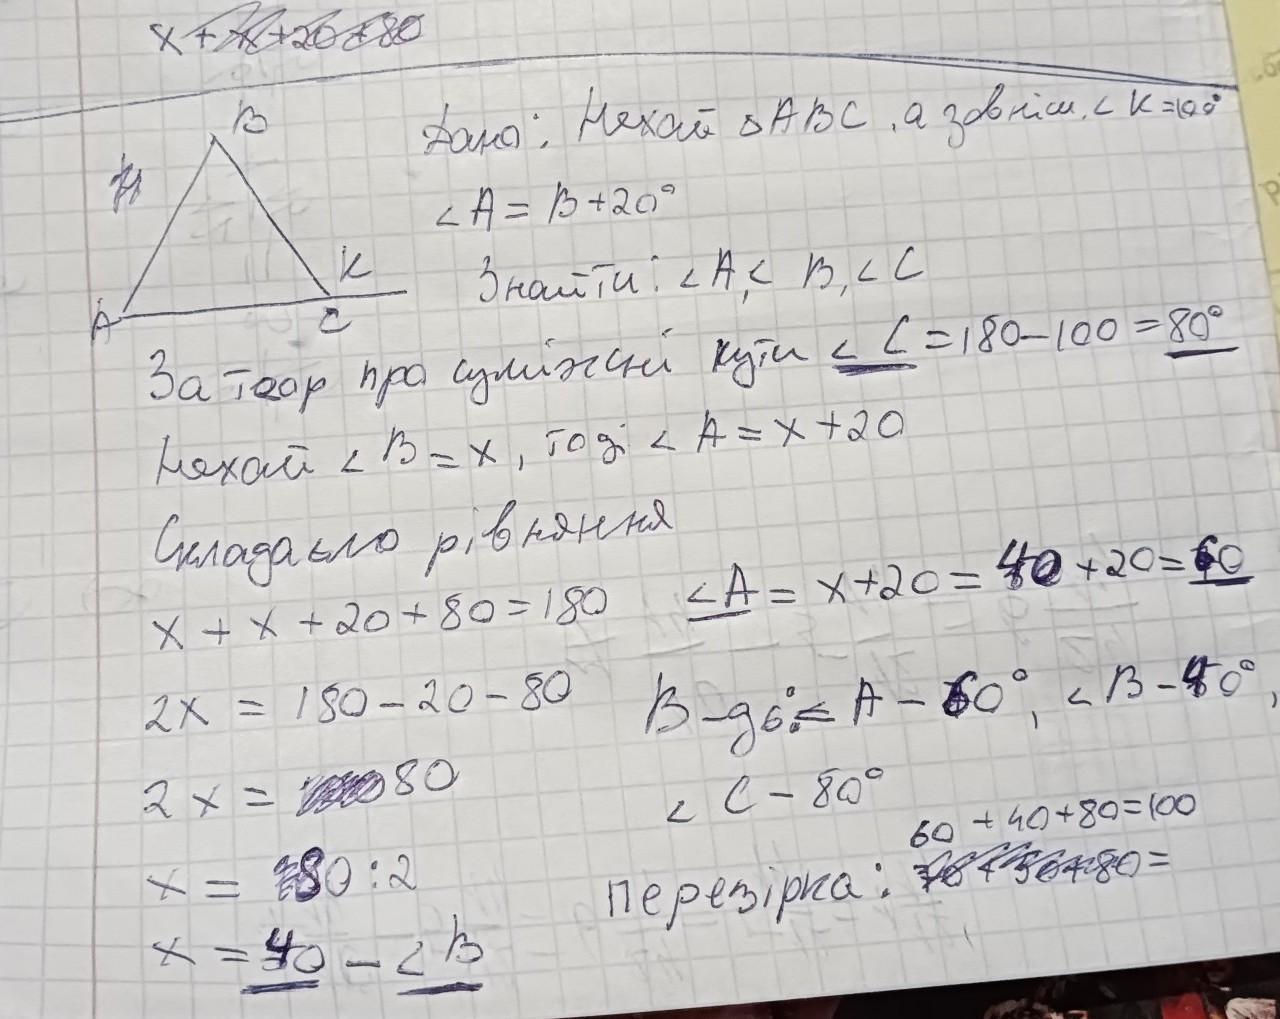 x + x + 20 + 80
B
Дано: Нехай △ABC, а зовніш. ∠K=100°
∠A = B+20°
K
Знайти: ∠A,∠ B,∠C
A
C
За теор про суміжні кути ∠C=180-100=80°
Нехай ∠B=x, тоді ∠A=x+20
Складаємо рівняння
x+x+20+80=180
∠A = x+20=40+20=60
2x = 180-20-80
В-дь:∠A-60°, ∠B-40°,
2x = 80
∠C-80°
60+40+80=100
x = 80:2
перевірка:
80=
x = 40 - ∠B